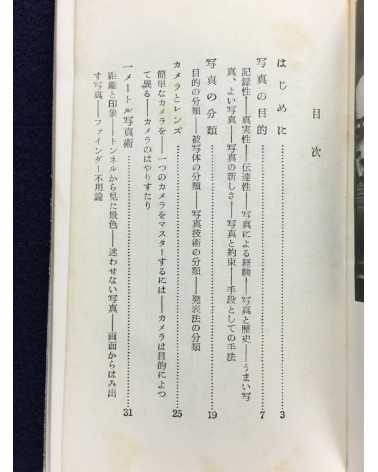 目次
はじめに……………………3
写真の目的……………………7
記録性――真実性――伝達性――写真による経験――写真と歴史――うまい写
真、よい写真――写真の新しさ――写真と約束――手段としての手法
写真の分類……………………19
目的の分類――被写体の分類――写真技術の分類――発表法の分類
カメラとレンズ……………………25
簡単なカメラを――一つのカメラをマスターするには――カメラは目的によつ
て異る――カメラのはやりすたり
一メートル写真術……………………31
距離と印象――トンネルから見た景色――迷わせない写真――画面からはみ出
す写真――ファインダー不用論